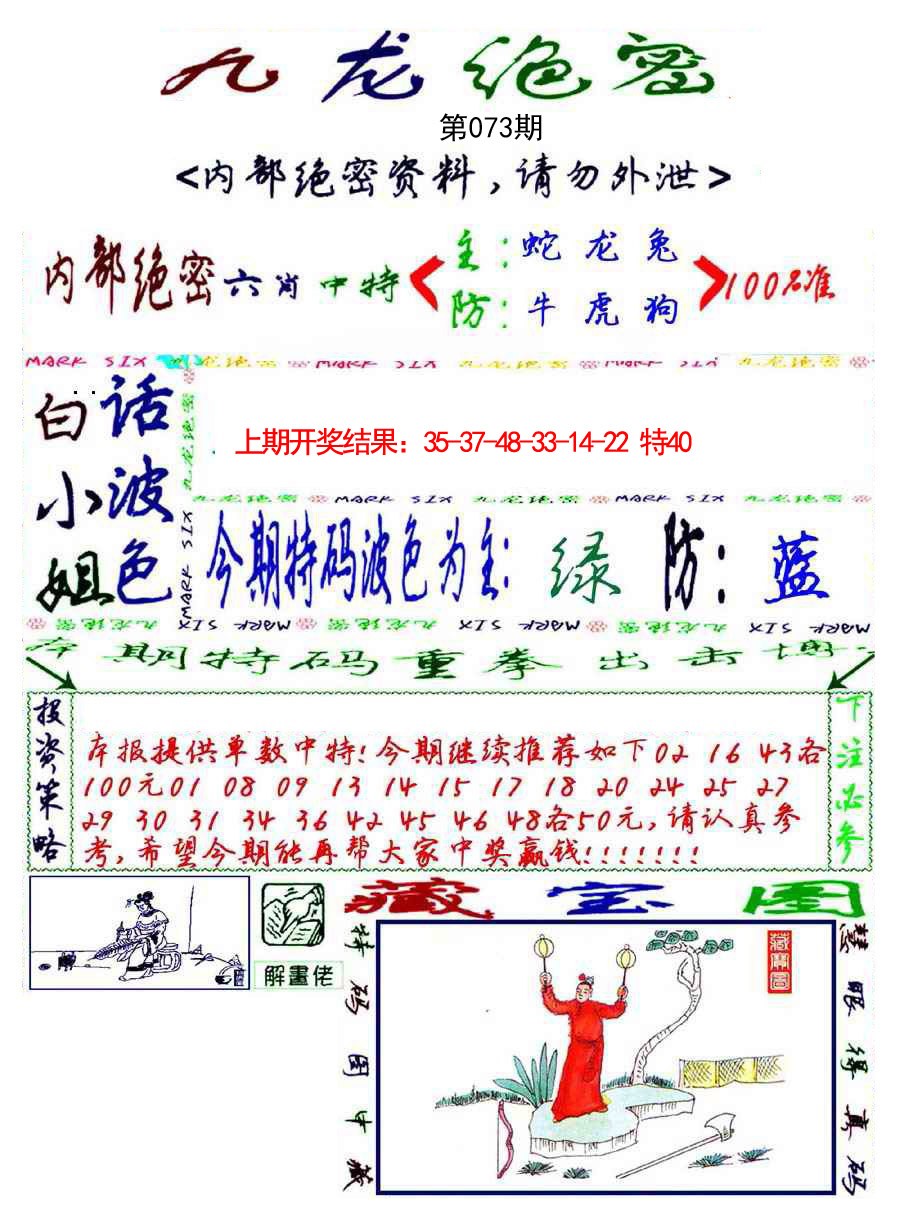 九龙绝密
第073期
<内部绝密资料,请勿外泄>
内部绝密六肖中特
主:蛇龙兔
防:牛虎狗
100%准
MARK SIX 九龙绝密 MARK SIX 九龙绝密 MARK SIX 九龙绝密
白话小波姐色
九龙绝密
MARK SIX
上期开奖结果：35-37-48-33-14-22 特40
九龙绝密 MARK SIX 九龙绝密 MARK SIX 九龙绝密
今期特码波色为主:绿 防:蓝
九龙绝密 MARK SIX 九龙绝密 MARK SIX 九龙绝密 MARK SIX
本期特码重拳出击
投资策略
本报提供单数中特!今期继续推荐如下02 16 43各
100元01 08 09 13 14 15 17 18 20 24 25 27
29 30 31 34 36 42 45 46 48各50元,请认真参
考,希望今期能再帮大家中奖赢钱!!!!!!!
下注必参
解畫佬
藏宝图
特码图中藏
藏寶图
慧眼得真码